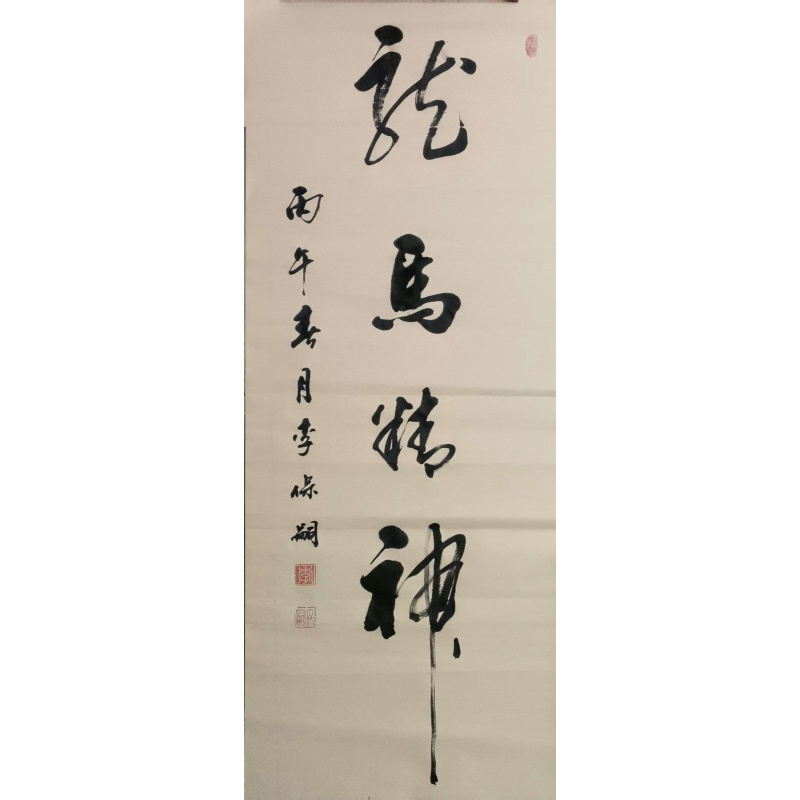 龍馬精神
丙午春月李保嗣